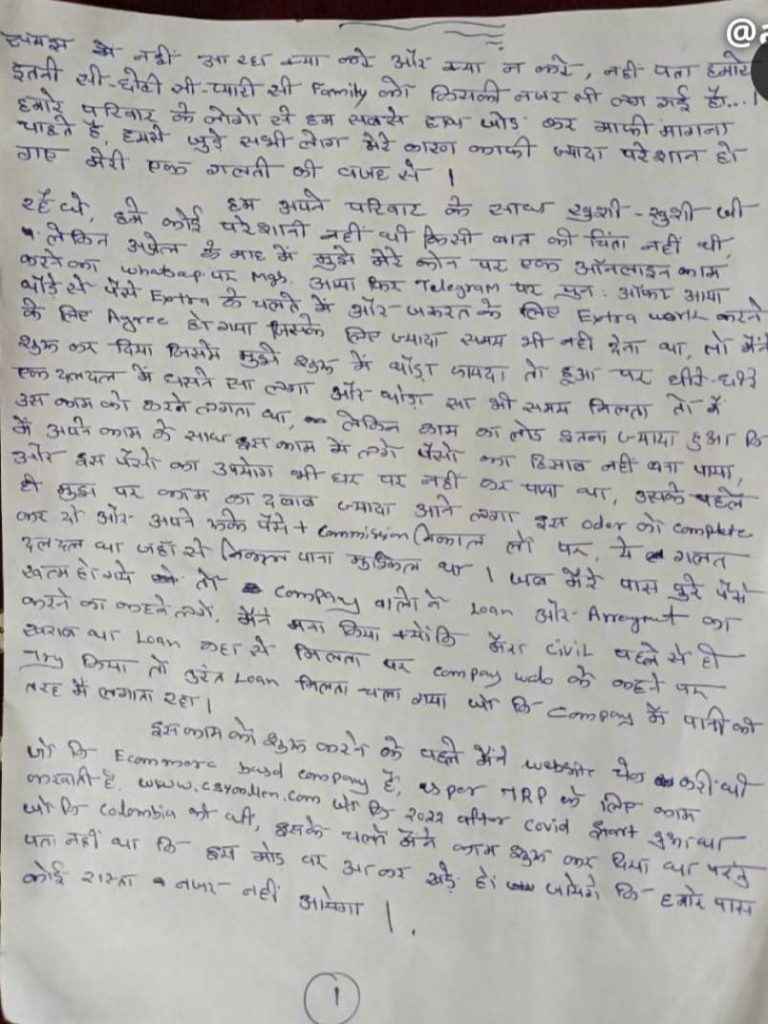 @a
समझ में नहीं आ रहा क्या करे और क्या न करे, नहीं पता हमारे
इतनी सी-छोटी सी-प्यारी सी Family को किसकी नजर सी लग गई है...।
हमारे परिवार के लोगो से हम सबसे हाथ जोड़ कर माफी मांगना
चाहते है, हमसे जुड़े सभी लोग मेरे कारण काफी ज्यादा परेशान हो
गए मेरी एक गलती की वजह से ।
हम अपने परिवार के साथ खुशी-खुशी जी
रहे थे, हमे कोई परेशानी नहीं थी किसी बात की चिंता नहीं थी,
लेकिन अप्रेल के माह में मुझे मेरे फोन पर एक ऑनलाइन काम
करने का whatsap पर Msg. आया फिर Telegram पर पुनः ऑफर आया
थोड़े से पैसे Extra के चलते में और जरूरत के लिए Extra work करने
के लिए Agree हो गया जिसके लिए ज्यादा समय भी नहीं देना था, तो मैंने
शुरू कर दिया जिसमे मुझे शुरू में थोड़ा फायदा तो हुआ पर धीरे-धीरे
एक दलदल में धसने सा लगा और थोड़ा सा भी समय मिलता तो मैं
उस काम को करने लगता था, लेकिन काम का लोड इतना ज्यादा हुआ कि
मैं अपने काम के साथ इस काम में लगे पैसों का हिसाब नहीं बना पाया,
और इस पैसों का उपयोग भी घर पर नहीं कर पाया था, उसके पहले
ही मुझ पर काम का दवाब ज्यादा आने लगा इस oder को complete
कर दो और अपने रुके पैसे + commission निकाल लो पर, ये गलत
दलदल था जहाँ से निकल पाना मुश्किल था । जब मेरे पास पुरे पैसे
खत्म हो गये तो company वालो ने Loan और Arregment का
करने का कहने लगे, मैंने मना किया क्योंकि मेरा civil पहले से ही
खराब था Loan कहा से मिलता पर company walo के कहने पर
Try किया तो तुरंत Loan मिलता चला गया जो कि company में पानी की
तरह मैं लगाता रहा ।
इस काम को शुरू करने के पहले मैंने website चेक करी थी
जो कि Ecommerc based company है, as per TRP के लिए काम
करवाती है. www.csyonllen.com जो कि 2022 after covid start हुआ था
जो कि colombia की थी, इसके चलते मैंने काम शुरू कर दिया था परंतु
पता नहीं था कि इस मोड पर आकर खड़े हो जायेंगे कि हमारे पास
कोई रास्ता नजर नहीं आयेगा ।.
1